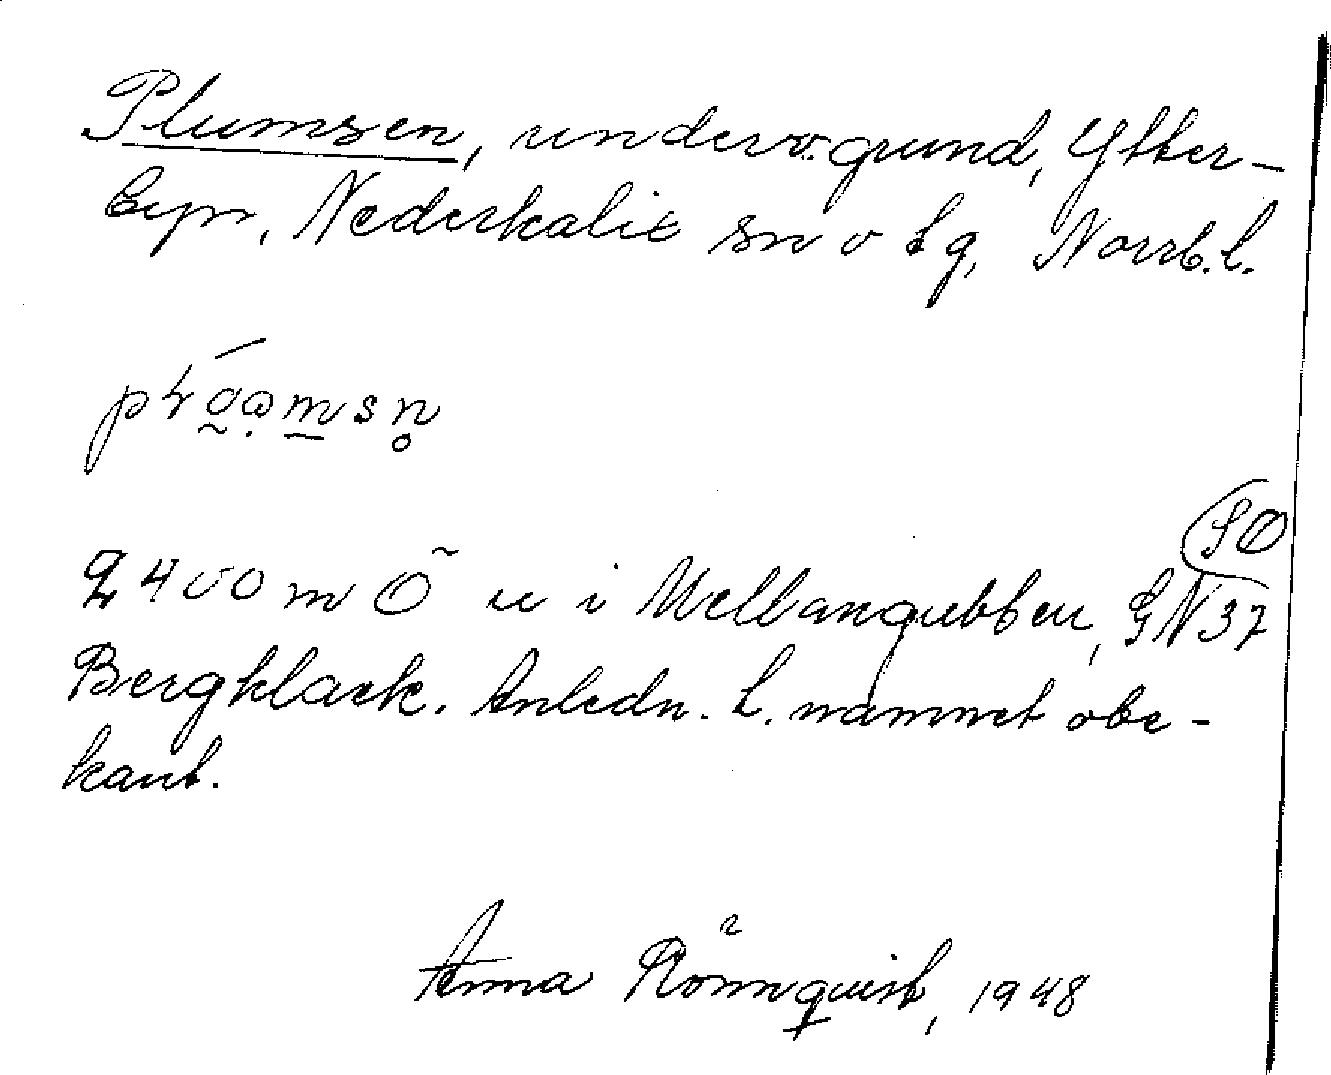 Plumsen, underv.grund, Ytter-
byn, Nederkalix sn o tg, Norrb.l.
SO
2400 m Ö u i Mellangubben, GN37
Bergklack. Anledn. t. namnet obe-
kant.
Anna Rönnquist, 1948